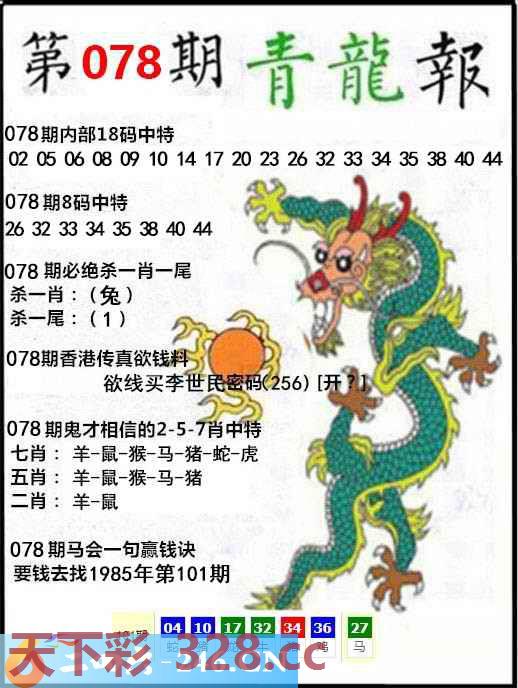 第078期青龍報
078期内部18码中特
02 05 06 08 09 10 14 17 20 23 26 32 33 34 35 38 40 44
078期8码中特
26 32 33 34 35 38 40 44
078期必绝杀一肖一尾
杀一肖：(兔)
杀一尾：(1)
078期香港传真欲钱料
欲线买李世民密码(256) [开?]
078期鬼才相信的2-5-7肖中特
七肖：羊-鼠-猴-马-猪-蛇-虎
五肖：羊-鼠-猴-马-猪
二肖：羊-鼠
078期马会一句赢钱诀
要钱去找1985年第101期
04 10 17 32 34 36 27
蛇 鸡 马
天下彩-328.cc